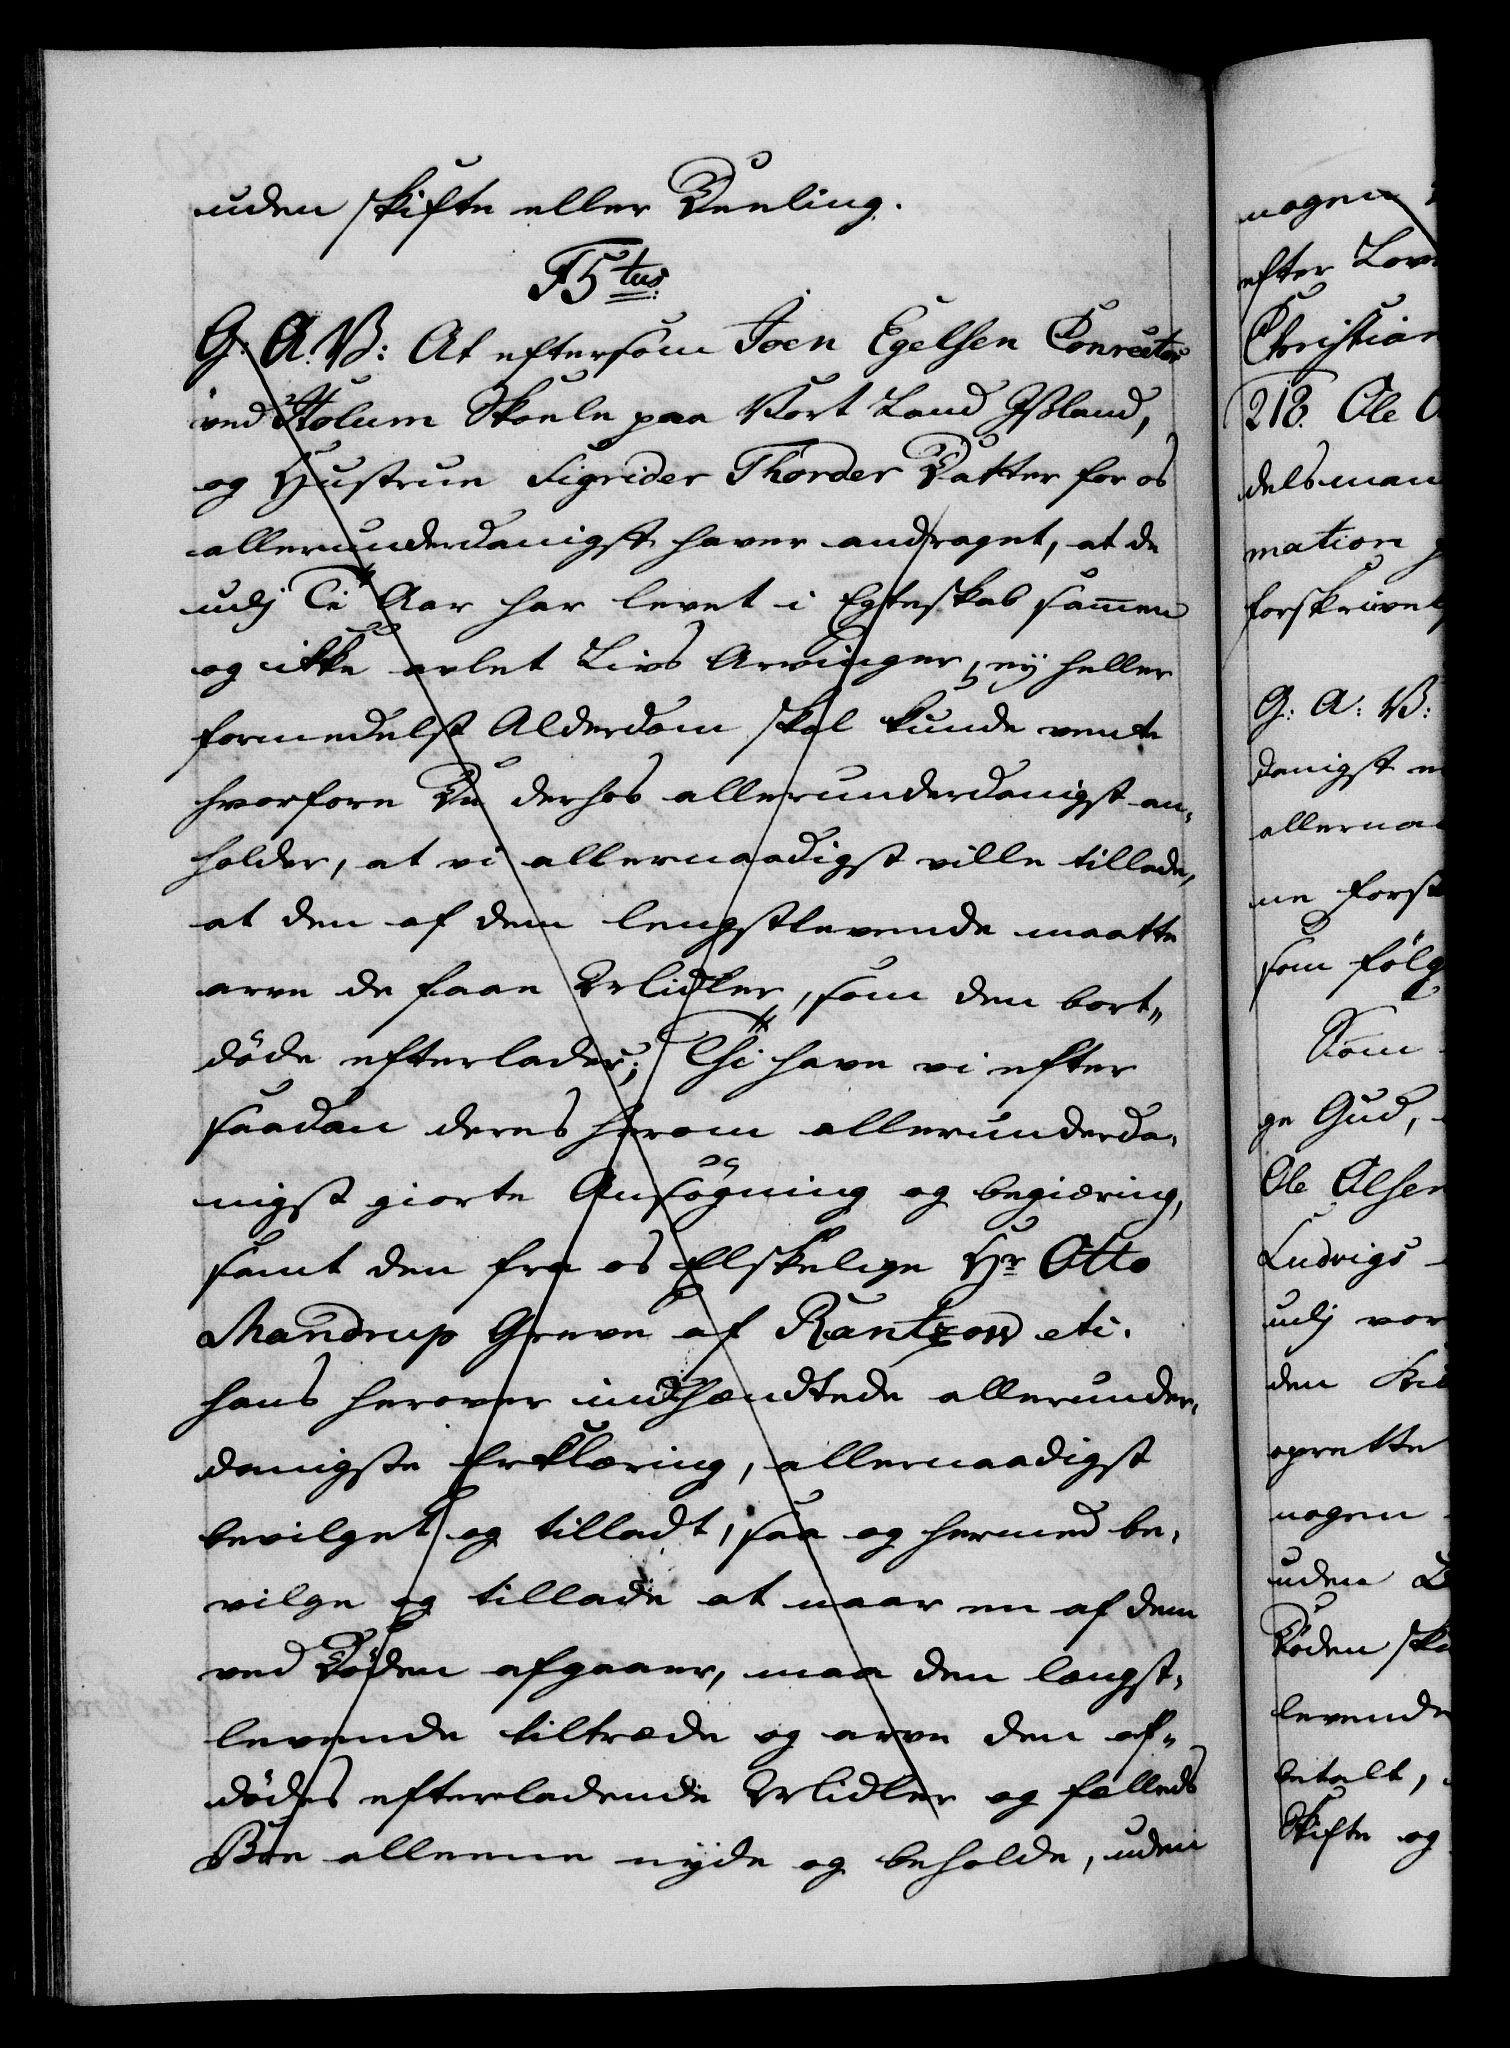 uden skifte eller Deeling.
F5tus
G: A: V: At eftersom Joen Egelsen Conrector
ved Holum Skoele paa Vort Land Ißland,
og Hustrue Sigrider Thorder Datter for os
allerunderdanigst haver andraget, at de
udj Ti Aar har levet i Egteskab sammen
og ikke avlet Livs Arvinger, eÿ heller
formedelst Alderdom skal kunde vente
hvorfore De derhos allerunderdanigst an-
holder, at vi allernaadigst ville tillade,
at den af dem lengstlevende maatte
arve de faae Midler, som den bort-
døde efterlader; Thi have vi efter
saadan deres herom allerunderda-
nigst giorte Ansøgning og begiæring,
samt den fra os Elskelige Hr Otto
Mandrup Greve af Rantzow etc.
hans herover indhændtede allerunder-
danigste Erklæring, allernaadigst
bevilget og tilladt, saa og hermed be-
vilge og tillade at naar en af dem
ved Døden afgaaer, maa den længst-
levende tiltræde og arve den af-
dødes efterladende Midler og fælleds
Boe alleene nÿde og beholde, uden
nogen
efter Lov
Christian
218. Ole
delsman
mation
forskrivel
G: A: V:
danigst
allernaa
ne forst
som følg
Som
ge Gud,
Ole Olsen
Ludvigs
udj vor
den
oprette
nogen
uden
Døden ska
levende
betalt,
Skifte og